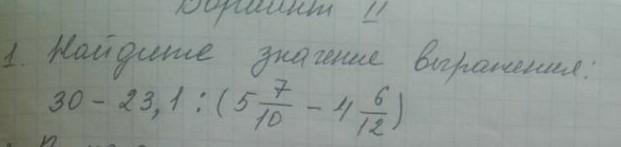 Вариант II
1. Найдите значение выражения:
30 - 23,1 : (5 7/10 - 4 6/12)